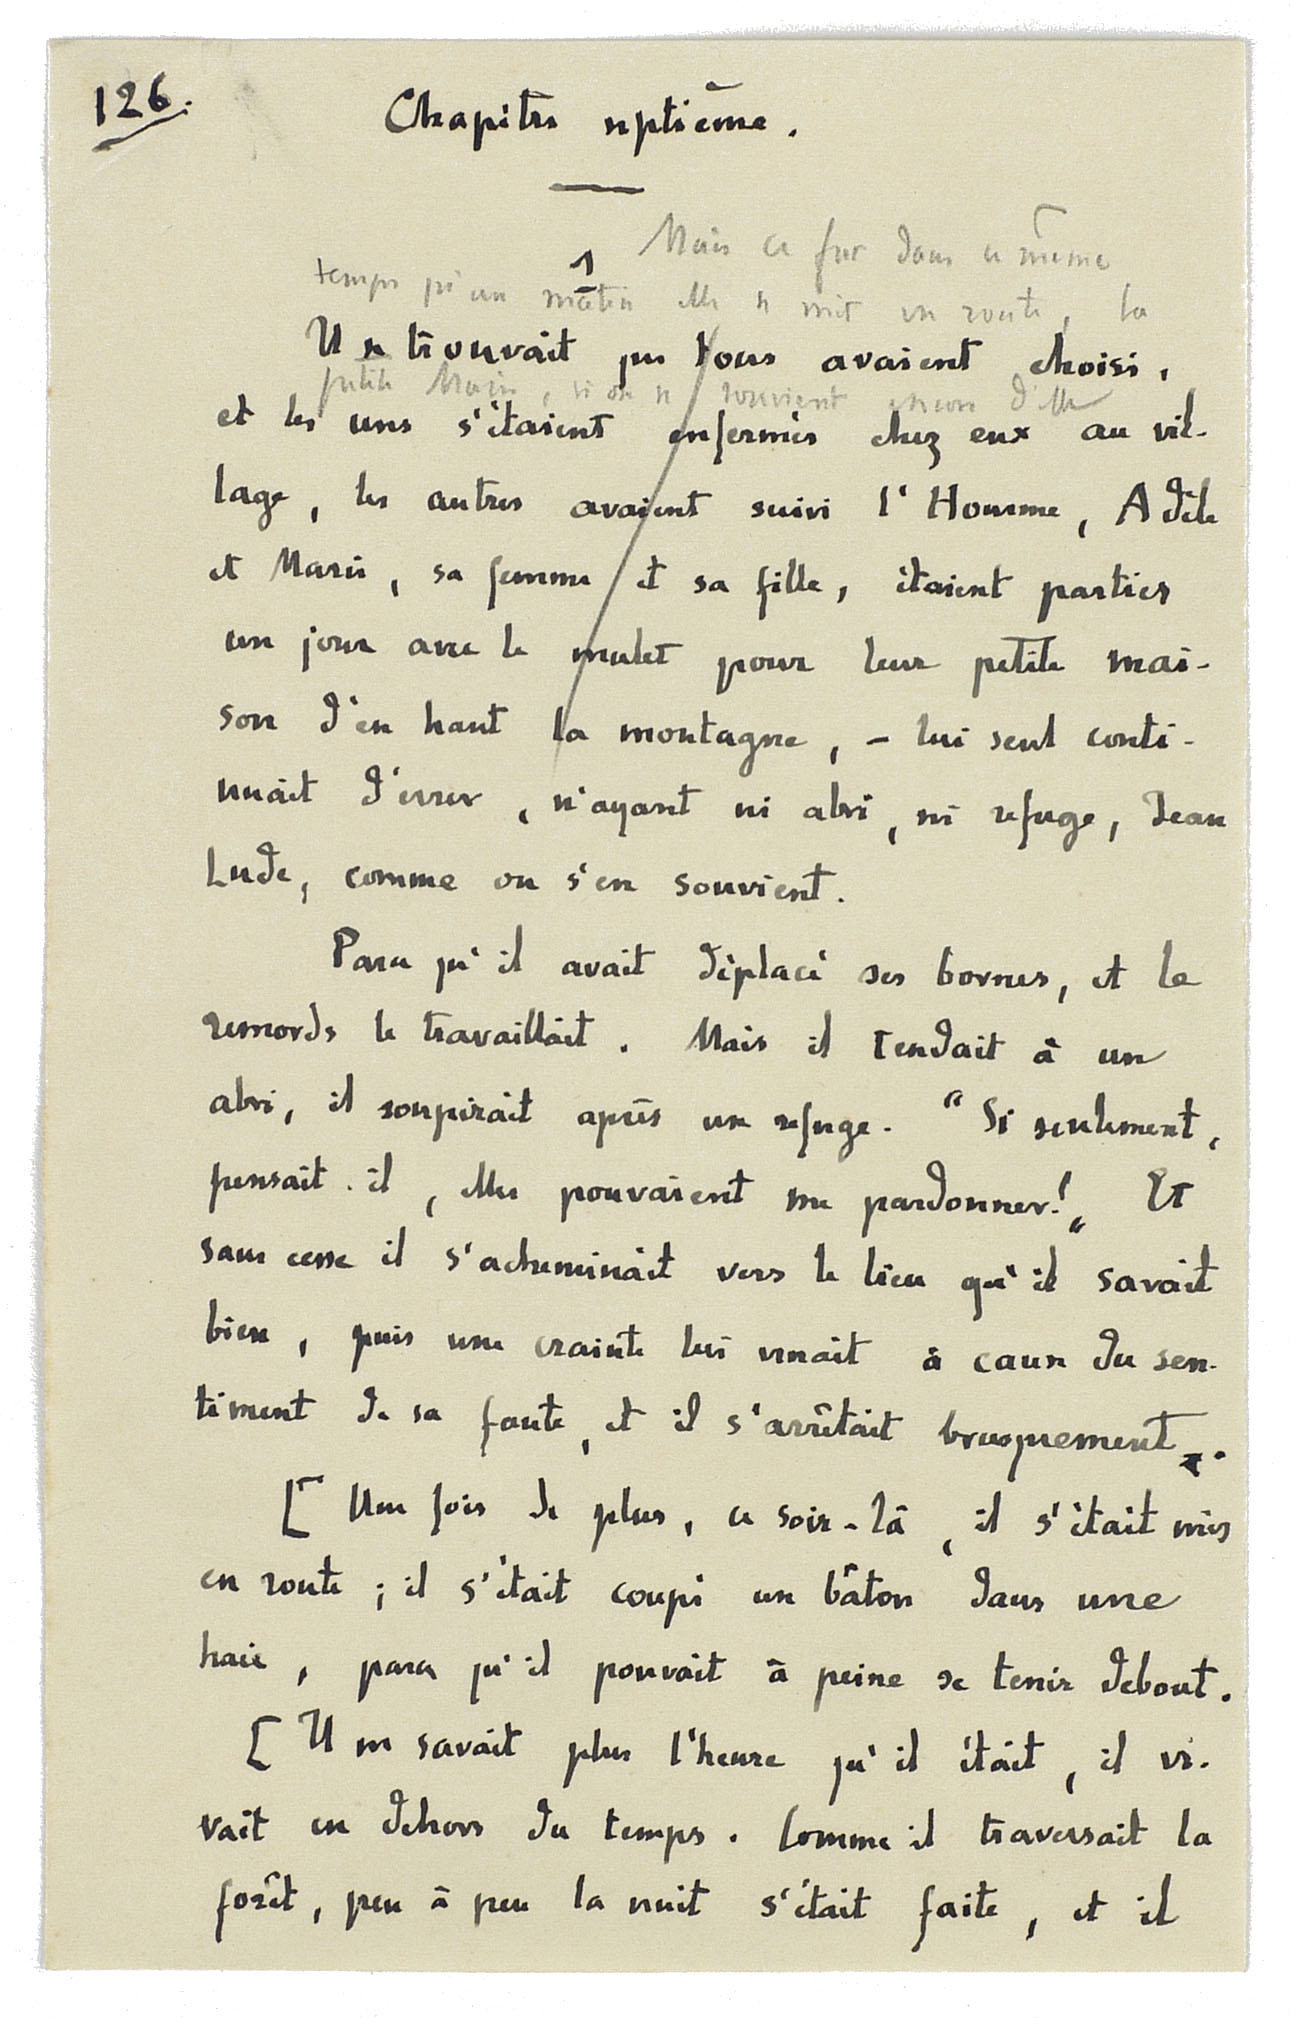 126.
Chapitre septième.
1
Mais ce fut dans ce même
temps qu'un matin elle se mit en route, la
Il se trouvait que tous avaient choisi,
petite Marie, si on se souvient encore d'elle
et les uns s'étaient enfermés chez eux au vil-
lage, les autres avaient suivi l'Homme, Adèle
et Marie, sa femme et sa fille, étaient parties
un jour avec le mulet pour leur petite mai-
son d'en haut la montagne, – lui seul conti-
nuait d'errer, n'ayant ni abri, ni refuge, Jean
Lude, comme on s'en souvient.
Parce qu'il avait déplacé ses bornes, et le
remords le travaillait. Mais il tendait à un
abri, il soupirait après un refuge. "Si seulement,
pensait-il, elles pouvaient me pardonner!" Et
sans cesse il s'acheminait vers le lieu qu'il savait
bien, puis une crainte lui venait à cause du sen-
timent de sa faute, et il s'arrêtait brusquement.
[ Une fois de plus, ce soir-là, il s'était mis
en route ; il s'était coupé un bâton dans une
haie, parce qu'il pouvait à peine se tenir debout.
[ Il ne savait plus l'heure qu'il était, il vi-
vait en dehors du temps. Comme il traversait la
forêt, peu à peu la nuit s'était faite, et il